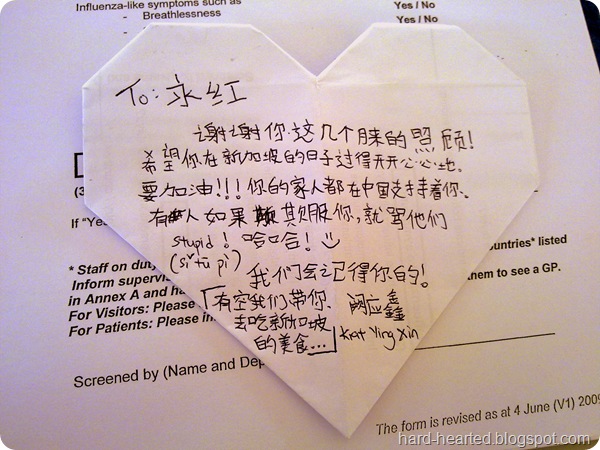 Influenza-like symptoms such as
- Breathlessness
Yes / No
Yes / No
To: 永红
谢谢你这几个月来的照顾!
希望你在新加坡的日子过得开开心心地。
要加油!!! 你的家人都在中国支持着你。
有人如果欺服你,就骂他们
stupid! 哈哈!
(sǐ tū pì)
我们会记得你的!
「有空我们带你
去吃新加坡
的美食...」
阙应鑫
Kat Ying Xin
If "Yes
* Staff on duty
ountries* listed
Inform supervis
them to see a GP.
in Annex A and ha
For Visitors: Please
For Patients: Please in
Screened by (Name and Dep
The form is revised as at 4 June (V1) 2009
hard-hearted.blogspot.com